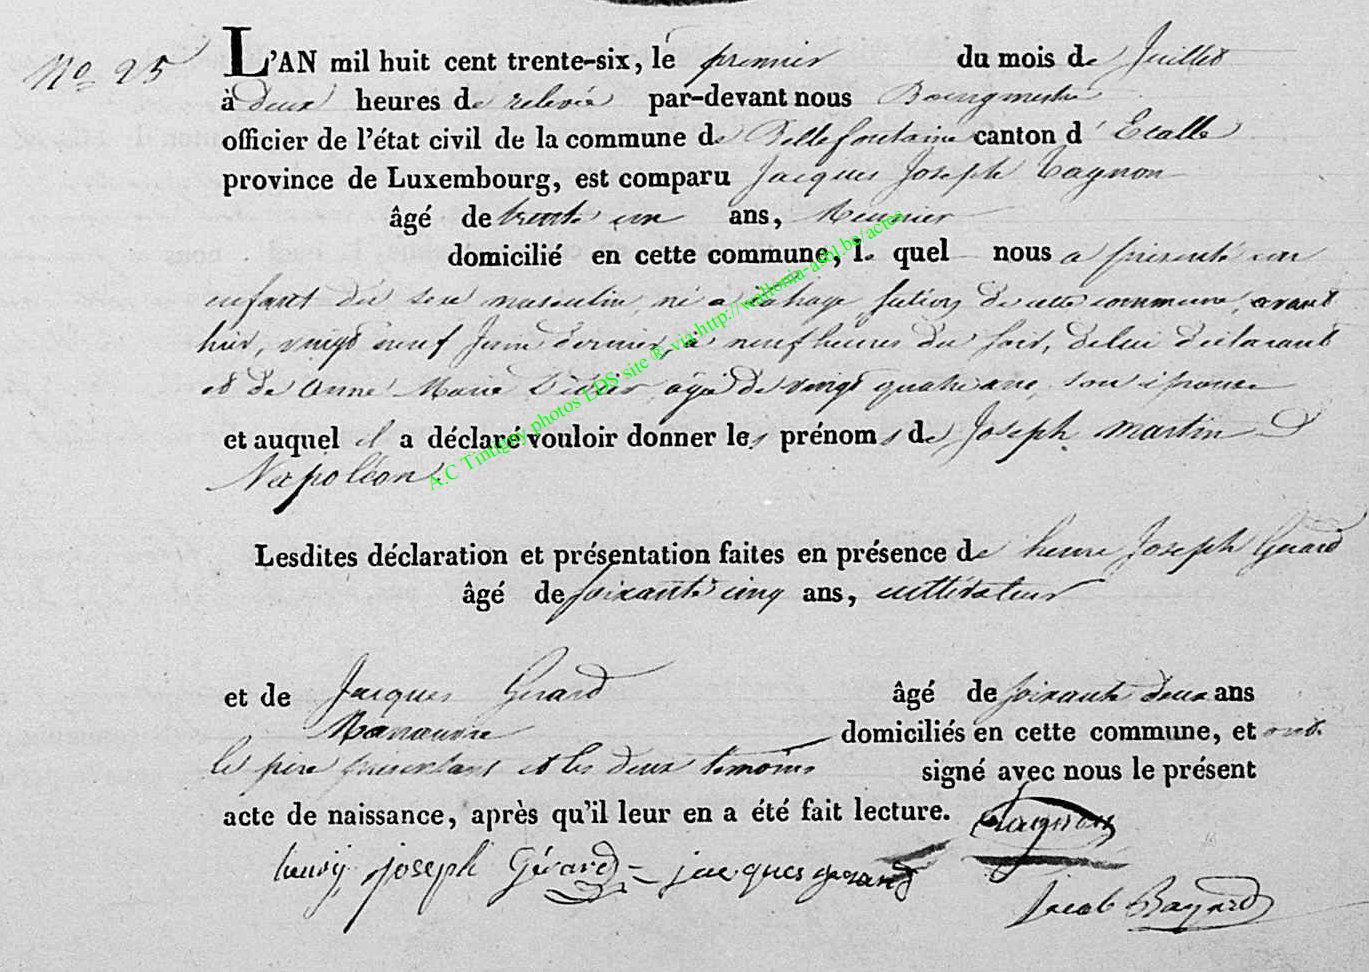 No 25
L'AN mil huit cent trente-six, le premier du mois de Juillet
à deux heures de relevée par-devant nous Bourgmestre
officier de l'état civil de la commune de Bellefontaine canton d' Etalle
province de Luxembourg, est comparu Jacques Joseph Tagnon
âgé de trente un ans, Meunier
domicilié en cette commune, le quel nous a présenté un
enfant du sexe masculin, né a lahage, section de cette commune, avant
hier, vingt neuf Juin dernier, à neuf heures du soir, de lui déclarant
et de Anne Marie Didier, agée de vingt quatre ans, son épouse
et auquel il a déclaré vouloir donner les prénoms de Joseph Martin
Napoléon.
Lesdites déclaration et présentation faites en présence de henri Joseph Gérard
âgé de soixante cinq ans, cultivateur
et de Jacques Gerard âgé de soixante deux ans
Manœuvre domiciliés en cette commune, et ont
le père présentant et les deux témoins signé avec nous le présent
acte de naissance, après qu'il leur en a été fait lecture. Tagnon
henrÿ joseph Gérard = jacques gerard
Jacob Bayard
A.C Tintigny photos LDS site ® via http://wallonia-asbl.be/actes